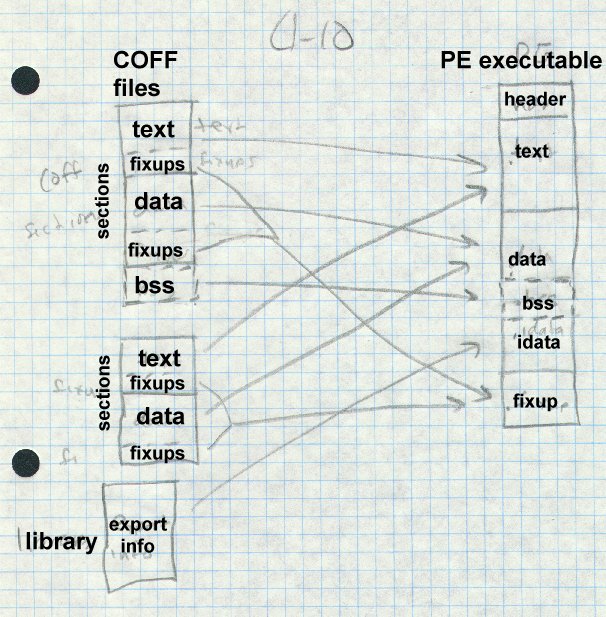 C1-10
COFF
files
PE executable
header
text
text
text
fixups
fixups
data
fixups
bss
sections
Coff
data
bss
idata
idata
fixup
text
fixups
data
fixups
sections
library
export
info